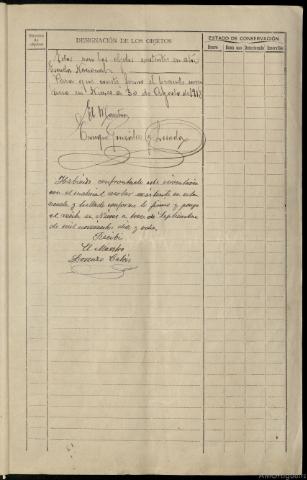 Número de objetos
DESIGNACIÓN DE LOS OBJETOS
ESTADO DE CONSERVACIÓN
Bueno
Deteriorado
Inservible
Estos son los objetos existentes en esta
Escuela Nacional
Para que conste firmo el presente
en Nieves a 30 de Agosto de 191
El Maestro
Enrique González
Habiendo confrontado este inventario
con el material escolar existente en esta
escuela y hallado conforme lo firmo y pongo
el recibí en Nieves a trece de Septiembre
de mil novecientos diez y ocho.
Recibí
El Maestro
Lorenzo